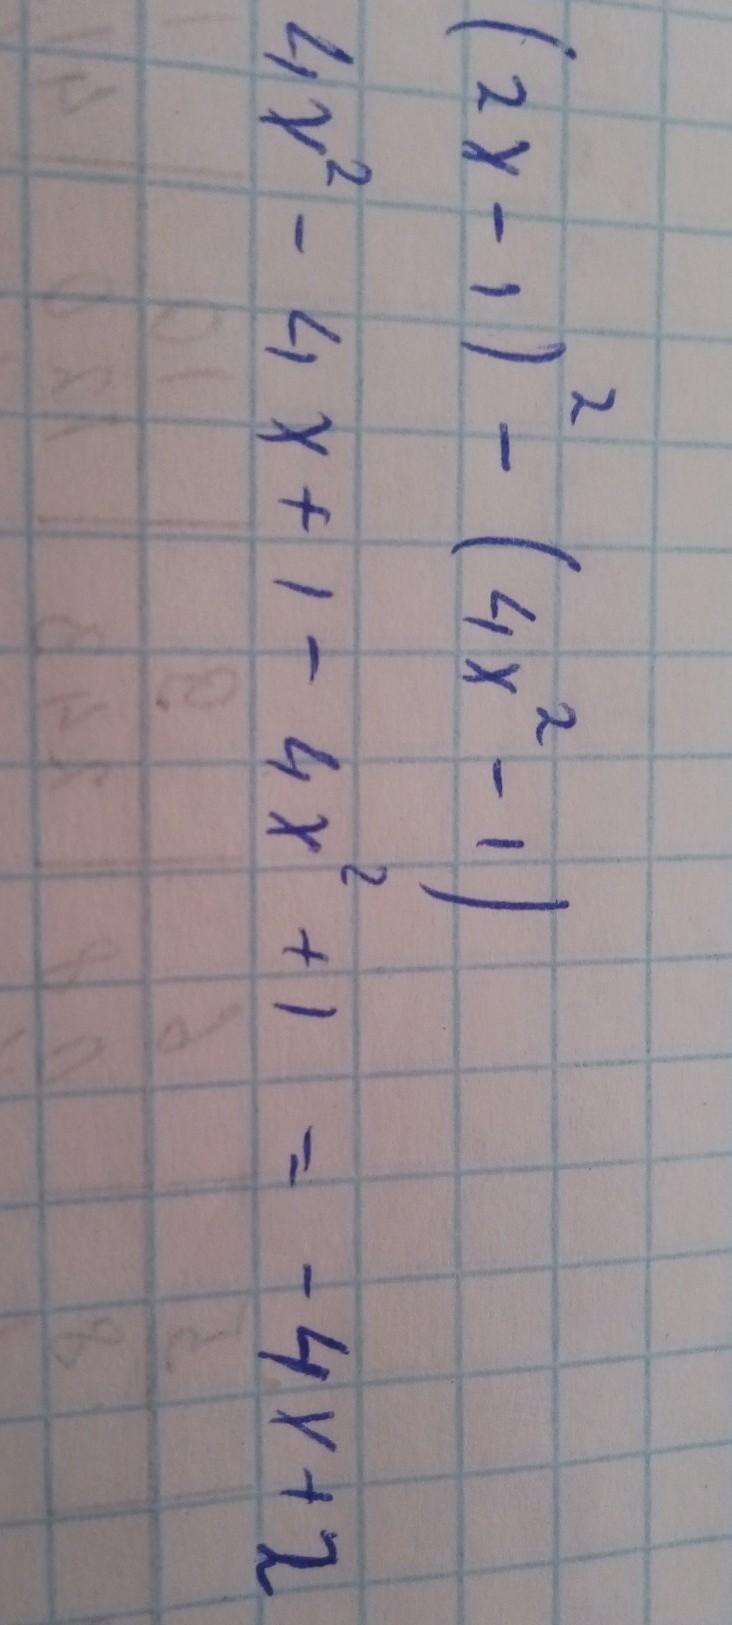 (2x-1)² - (4x²-1)
4x² - 4x + 1 - 4x² + 1 = -4x + 2